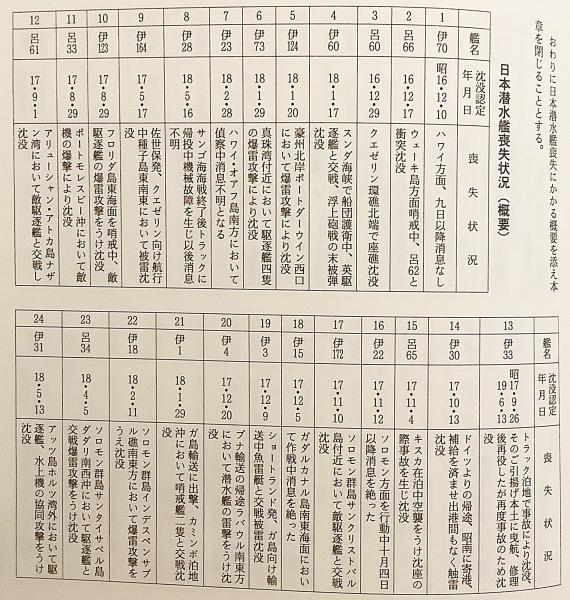 おわりに日本潜水艦喪失にかかる概要を添え本
章を閉じることとする。
日本潜水艦喪失状況(概要)
艦名
沈没認定
年月日
喪失状況
1
伊70
昭16・12・10
ハワイ方面、九日以降消息なし
2
呂66
16・12・17
ウェーキ島方面哨戒中、呂62と
衝突沈没
3
呂60
16・12・29
クェゼリン環礁北端で座礁沈没
4
伊60
18・1・17
スンダ海峡で船団護衛中、英駆
逐艦と交戦、浮上砲戦の末被弾
沈没
5
伊124
18・1・20
豪州北岸ポートダーウイン西口
において爆雷攻撃により沈没
6
伊73
18・1・29
真珠湾付近において駆逐艦四隻
の爆雷攻撃により沈没
7
伊23
18・2・28
ハワイ・オアフ島南方において
偵察中消息不明となる
8
伊28
18・5・16
サンゴ海海戦終了後トラックに
帰投中機械故障を生じ以後消息
不明
9
伊164
17・5・17
佐世保発、クェゼリン向け航行
中種子島東南東において被雷沈
没
10
伊123
17・8・29
フロリダ島東海面を哨戒中、敵
駆逐艦の爆雷攻撃をうけ沈没
11
呂33
17・8・29
ポートモレスビー沖において敵
機の爆撃により沈没
12
呂61
17・9・1
アリューシャン・アトカ島ナザ
ン湾において敵駆逐艦と交戦し
沈没
艦名
沈没認定
年月日
喪失状況
13
伊33
昭17・9・26
19・6・13
トラック泊地で事故により沈没、
そのご引揚げ本土に曳航、修理
後再役したが再度事故のため沈
没
14
伊30
17・10・13
ドイツよりの帰途、昭南に寄港、
補給を済ませ出港間もなく触雷
沈没
15
呂65
17・11・4
キスカ在泊中空襲をうけ沈座の
際事故を生じ沈没
16
伊22
17・11・12
ソロモン方面を行動中十月四日
以降消息を絶った
17
伊172
17・11・10
ソロモン群島サンクリストバル
島付近において敵駆逐艦と交戦
沈没
18
伊15
17・12・5
ガダルカナル島南東海面におい
て作戦中消息を絶った
19
伊3
17・12・9
ショートランド発、ガ島向け輸
送中魚雷艇と交戦被雷沈没
20
伊4
17・12・20
ブナ輸送の帰途ラバウル南東方
において潜水艦の雷撃をうけ沈
没
21
伊1
18・1・29
ガ島輸送に出撃、カミンボ泊地
沖において哨戒艇二隻と交戦沈
没
22
伊18
18・2・11
ソロモン群島インデスペンサブ
ル礁南東方において爆雷攻撃を
うえ沈没
23
呂34
18・4・5
ソロモン群島サンタイサベル島
ダダリ南西沖において駆逐艦と
交戦爆雷攻撃をうけ沈没
24
伊31
18・5・13
アッツ島ホルツ湾外において駆
逐艦、水上機の協同攻撃をうけ
沈没